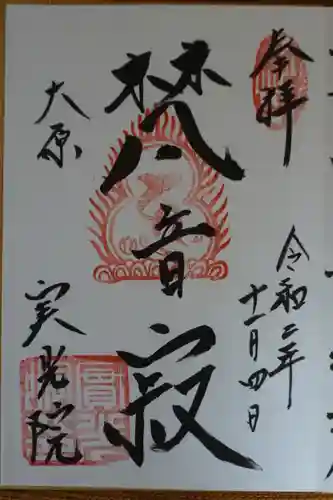 奉拝
令和二年
十一月四日
梵音寂
大原
実光院